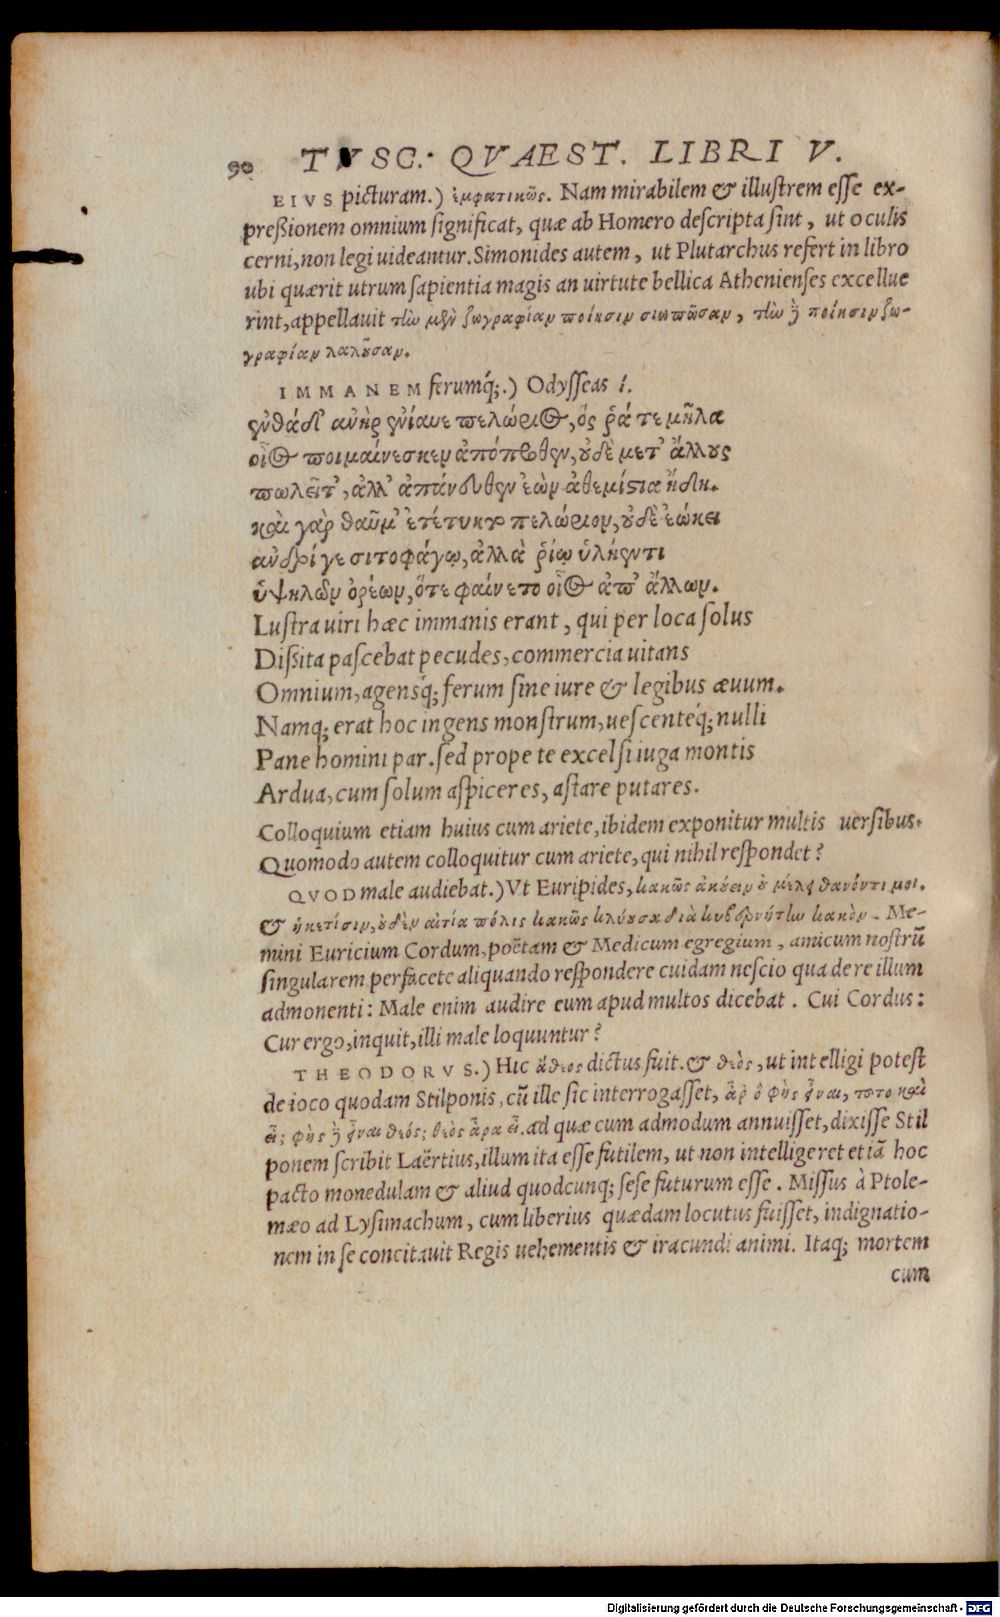 90 TVSC. QVAEST. LIBRI V.
EIVS picturam.) ἐμφατικῶς. Nam mirabilem & illuſtrem eſſe ex-
preßionem omnium ſignificat, quæ ab Homero deſcripta ſint, ut oculis
cerni, non legi uideantur. Simonides autem, ut Plutarchus refert in libro
ubi quærit utrum ſapientia magis an uirtute bellica Athenienſes excellue
rint, appellauit τὴν μὲν ζωγραφίαν ποίησιν σιωπῶσαν, τὴν δὲ ποίησιν ζω-
γραφίαν λαλοῦσαν.
IMMANEM ferumq́;.) Odyſſeas ί.
ἐνθάδ᾽ ἀνὴρ ἐνίαυε πελώριος, ὅς ῥά τε μῆλα
οἶος ποιμαίνεσκεν ἀπόπροθεν, οὐδὲ μετ᾽ ἄλλους
πωλεῖτ᾽, ἀλλ᾽ ἀπάνευθεν ἐὼν ἀθεμίστια ᾔδη.
καὶ γὰρ θαῦμ᾽ ἐτέτυκτο πελώριον, οὐδὲ ἐώκει
ἀνδρί γε σιτοφάγῳ, ἀλλὰ ῥίῳ ὑλήεντι
ὑψηλῶν ὀρέων, ὅτε φαίνετο οἶος ἀπ᾽ ἄλλων.
Luſtra uiri hæc immanis erant, qui per loca ſolus
Dißita paſcebat pecudes, commercia uitans
Omnium, agensq́; ferum ſine iure & legibus æuum.
Namq; erat hoc ingens monſtrum, ueſcenteq́; nulli
Pane homini par. ſed prope te excelſi iuga montis
Ardua, cum ſolum aſpiceres, aſtare putares.
Colloquium etiam huius cum ariete, ibidem exponitur multis uerſibus.
Quomodo autem colloquitur cum ariete, qui nihil reſpondet?
QVOD male audiebat.) Vt Euripides, κακῶς ἀκούειν οὐ μέλει θανόντι μοι.
& ἱκετίσιν, οὐδὲν αἰτία πόλις κακῶς κλύουσα διὰ κυβερνήτην κακὸν. Me-
mini Euricium Cordum, poëtam & Medicum egregium, amicum noſtrũ
ſingularem perfacete aliquando reſpondere cuidam neſcio qua de re illum
admonenti: Male enim audire eum apud multos dicebat. Cui Cordus:
Cur ergo, inquit, illi male loquuntur?
THEODORVS.) Hic ἄθεος dictus fuit. & θεὸς, ut intelligi poteſt
de ioco quodam Stilponis, cũ ille ſic interrogaſſet, ἆρ ὃ φὴς εἶναι, τοῦτο καὶ
εἶ; φὴς δὲ εἶναι θεός; θεὸς ἄρα εἶ. ad quæ cum admodum annuiſſet, dixiſſe Stil
ponem ſcribit Laërtius, illum ita eſſe futilem, ut non intelligeret etiã hoc
pacto monedulam & aliud quodcunq; ſeſe futurum eſſe. Miſſus à Ptole-
mæo ad Lyſimachum, cum liberius quædam locutus fuiſſet, indignatio-
nem in ſe concitauit Regis uehementis & iracundi animi. Itaq; mortem
cum
Digitalisierung gefördert durch die Deutsche Forschungsgemeinschaft - DFG